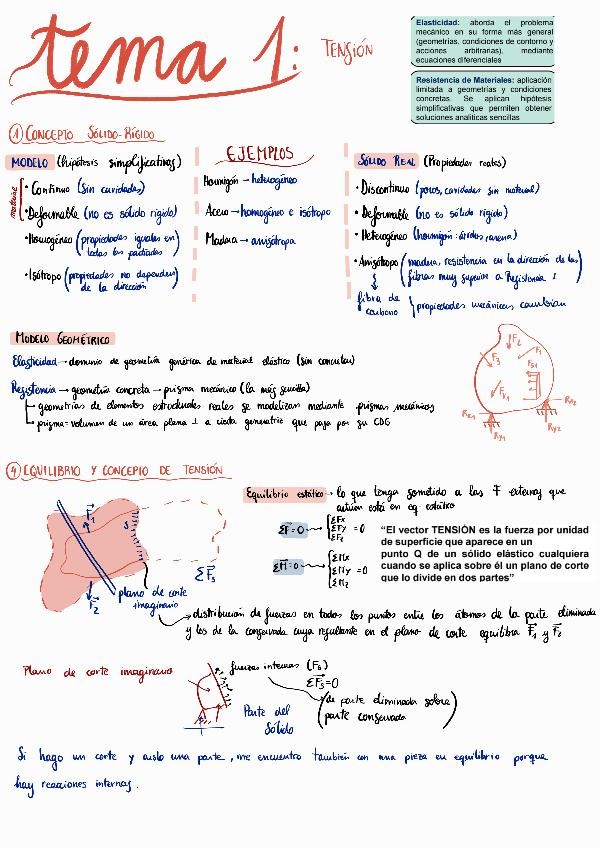 tema 1: TENSIÓN
Elasticidad: aborda el problema
mecánico en su forma más general
(geometrías, condiciones de contorno y
acciones arbitrarias), mediante
ecuaciones diferenciales
Resistencia de Materiales: aplicación
limitada a geometrías y condiciones
concretas. Se aplican hipótesis
simplificativas que permiten obtener
soluciones analíticas sencillas
① CONCEPTO SÓLIDO-RÍGIDO
MODELO (hipótesis simplificativas)
material
• Continuo (sin cavidades)
• Deformable (no es sólido rígido)
• Homogéneo (propiedades iguales en
todas las partículas)
• Isótropo (propiedades no dependen
de la dirección)
EJEMPLOS
Hormigón → heterogéneo
Acero → homogéneo e isótropo
Madera → anisótropa
SÓLIDO REAL (Propiedades reales)
• Discontinuo (poros, cavidades sin material)
• Deformable (no es sólido rígido)
• Heterogéneo (hormigón: áridos, arena)
• Anisótropo (madera, resistencia en la dirección de las
fibras muy superior a Resistencia ⊥
fibra de
carbono
propiedades mecánicas cambian
MODELO GEOMÉTRICO
Elasticidad → dominio de geometría genérica de material elástico (sin concretar)
Resistencia → geometría concreta → prisma mecánico (la más sencilla)
geometrías de elementos estructurales reales se modelizan mediante prismas mecánicos
prisma = volumen de un área plana ⊥ a cierta generatriz que pasa por su CDG
F2
F1
F3
FS1
FK1
Rx1
Ry1
Rx2
Ry2
④ EQUILIBRIO Y CONCEPTO DE TENSIÓN
Equilibrio estático → lo que tenga sometido a las F externas que
actúen está en eq estático
ΣF = 0 → ΣFx
ΣFy = 0
ΣFz
ΣM = 0 → ΣMx
ΣMy = 0
ΣMz
“El vector TENSIÓN es la fuerza por unidad
de superficie que aparece en un
punto Q de un sólido elástico cualquiera
cuando se aplica sobre él un plano de corte
que lo divide en dos partes”
F1
S
F2
ΣFs
plano de corte
imaginario
distribución de fuerzas en todos los puntos entre los átomos de la parte eliminada
y los de la conservada cuya resultante en el plano de corte equilibra F1 y F2
Plano de corte imaginario
fuerzas internas (Fs)
ΣFs=0
de parte eliminada sobre
parte conservada
Parte del
Sólido
Si hago un corte y aislo una parte, me encuentro también con una pieza en equilibrio porque
hay reacciones internas.